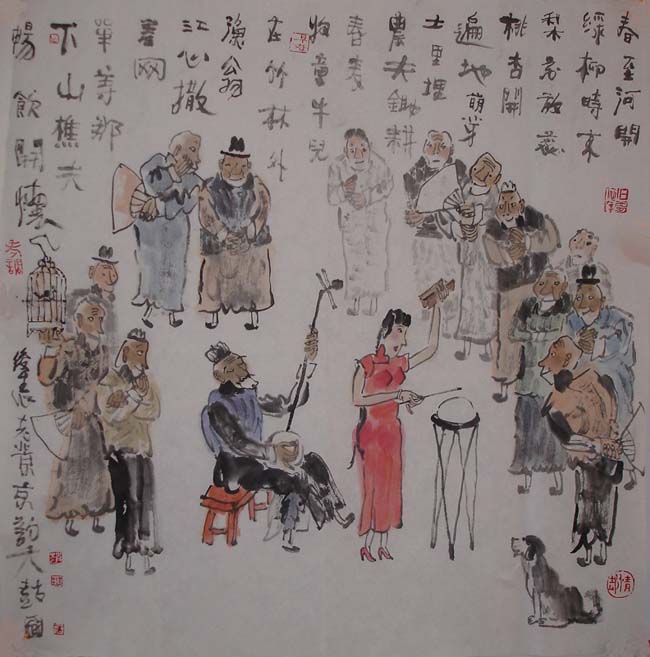 春至河開
綠柳時來
梨花放蕊
桃杏開
遍地萌芽
土里埋
農夫鋤耕
春麦
牧童牛兒
在竹林外
漁翁
江心撒
网
單等那
下山樵夫
暢飲開懷
京韵大鼓画